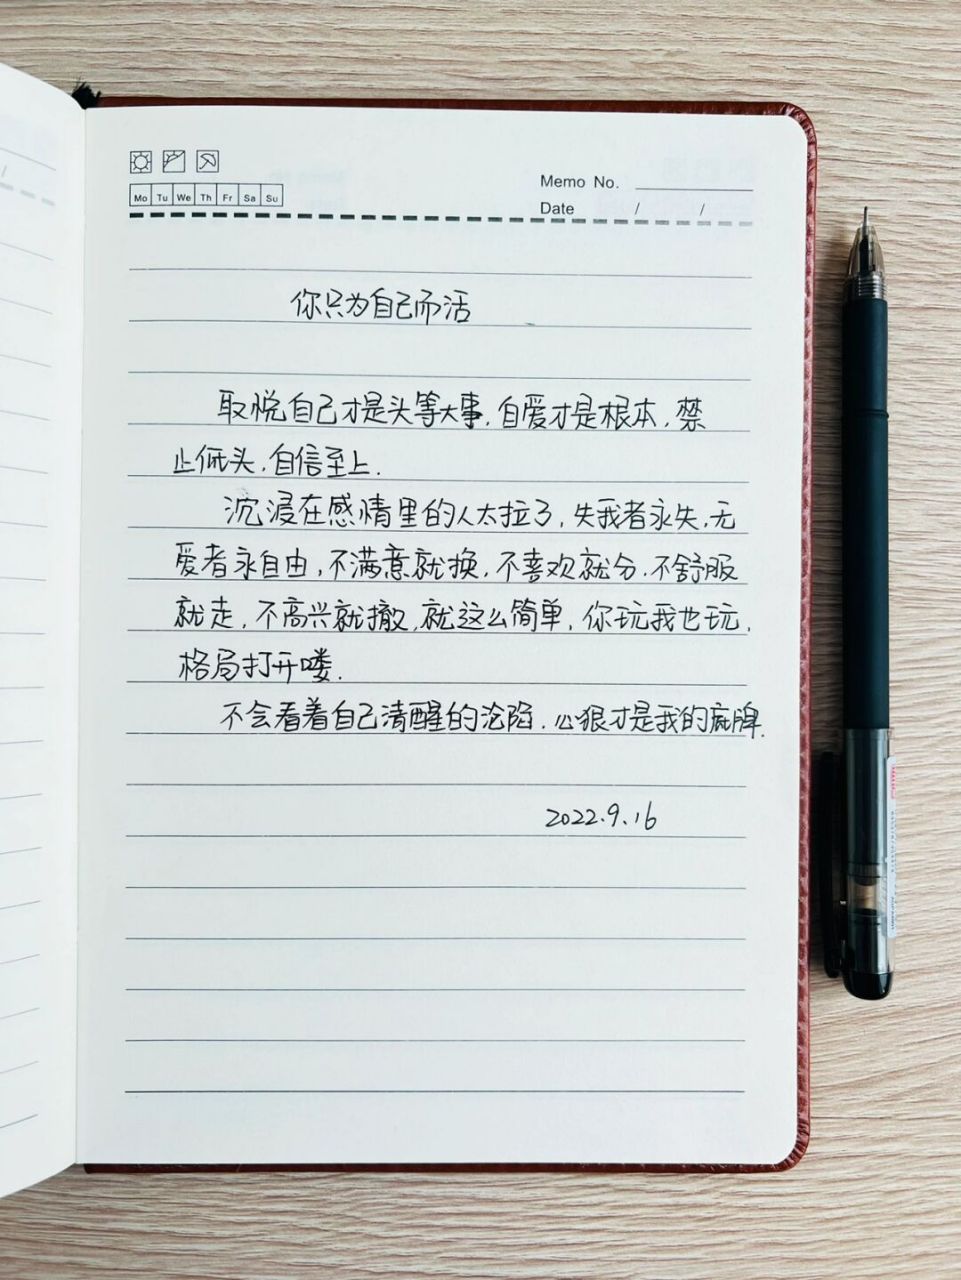 Mo Tu We Th Fr Sa Su
Memo No.
Date / /
你只为自己而活
取悦自己才是头等大事.自爱才是根本.禁
止低头.自信至上.
沉浸在感情里的人太拉了,失我者永失.无
爱者永自由,不满意就换.不喜欢就分.不舒服
就走,不高兴就撤.就这么简单,你玩我也玩.
格局打开喽.
不会看着自己清醒的沦陷.心狠才是我的底牌.
2022.9.16